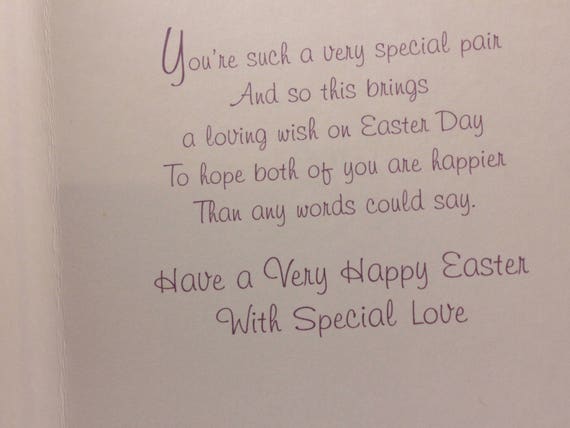 You're such a very special pair
And so this brings
a loving wish on Easter Day
To hope both of you are happier
Than any words could say.
Have a Very Happy Easter
With Special Love